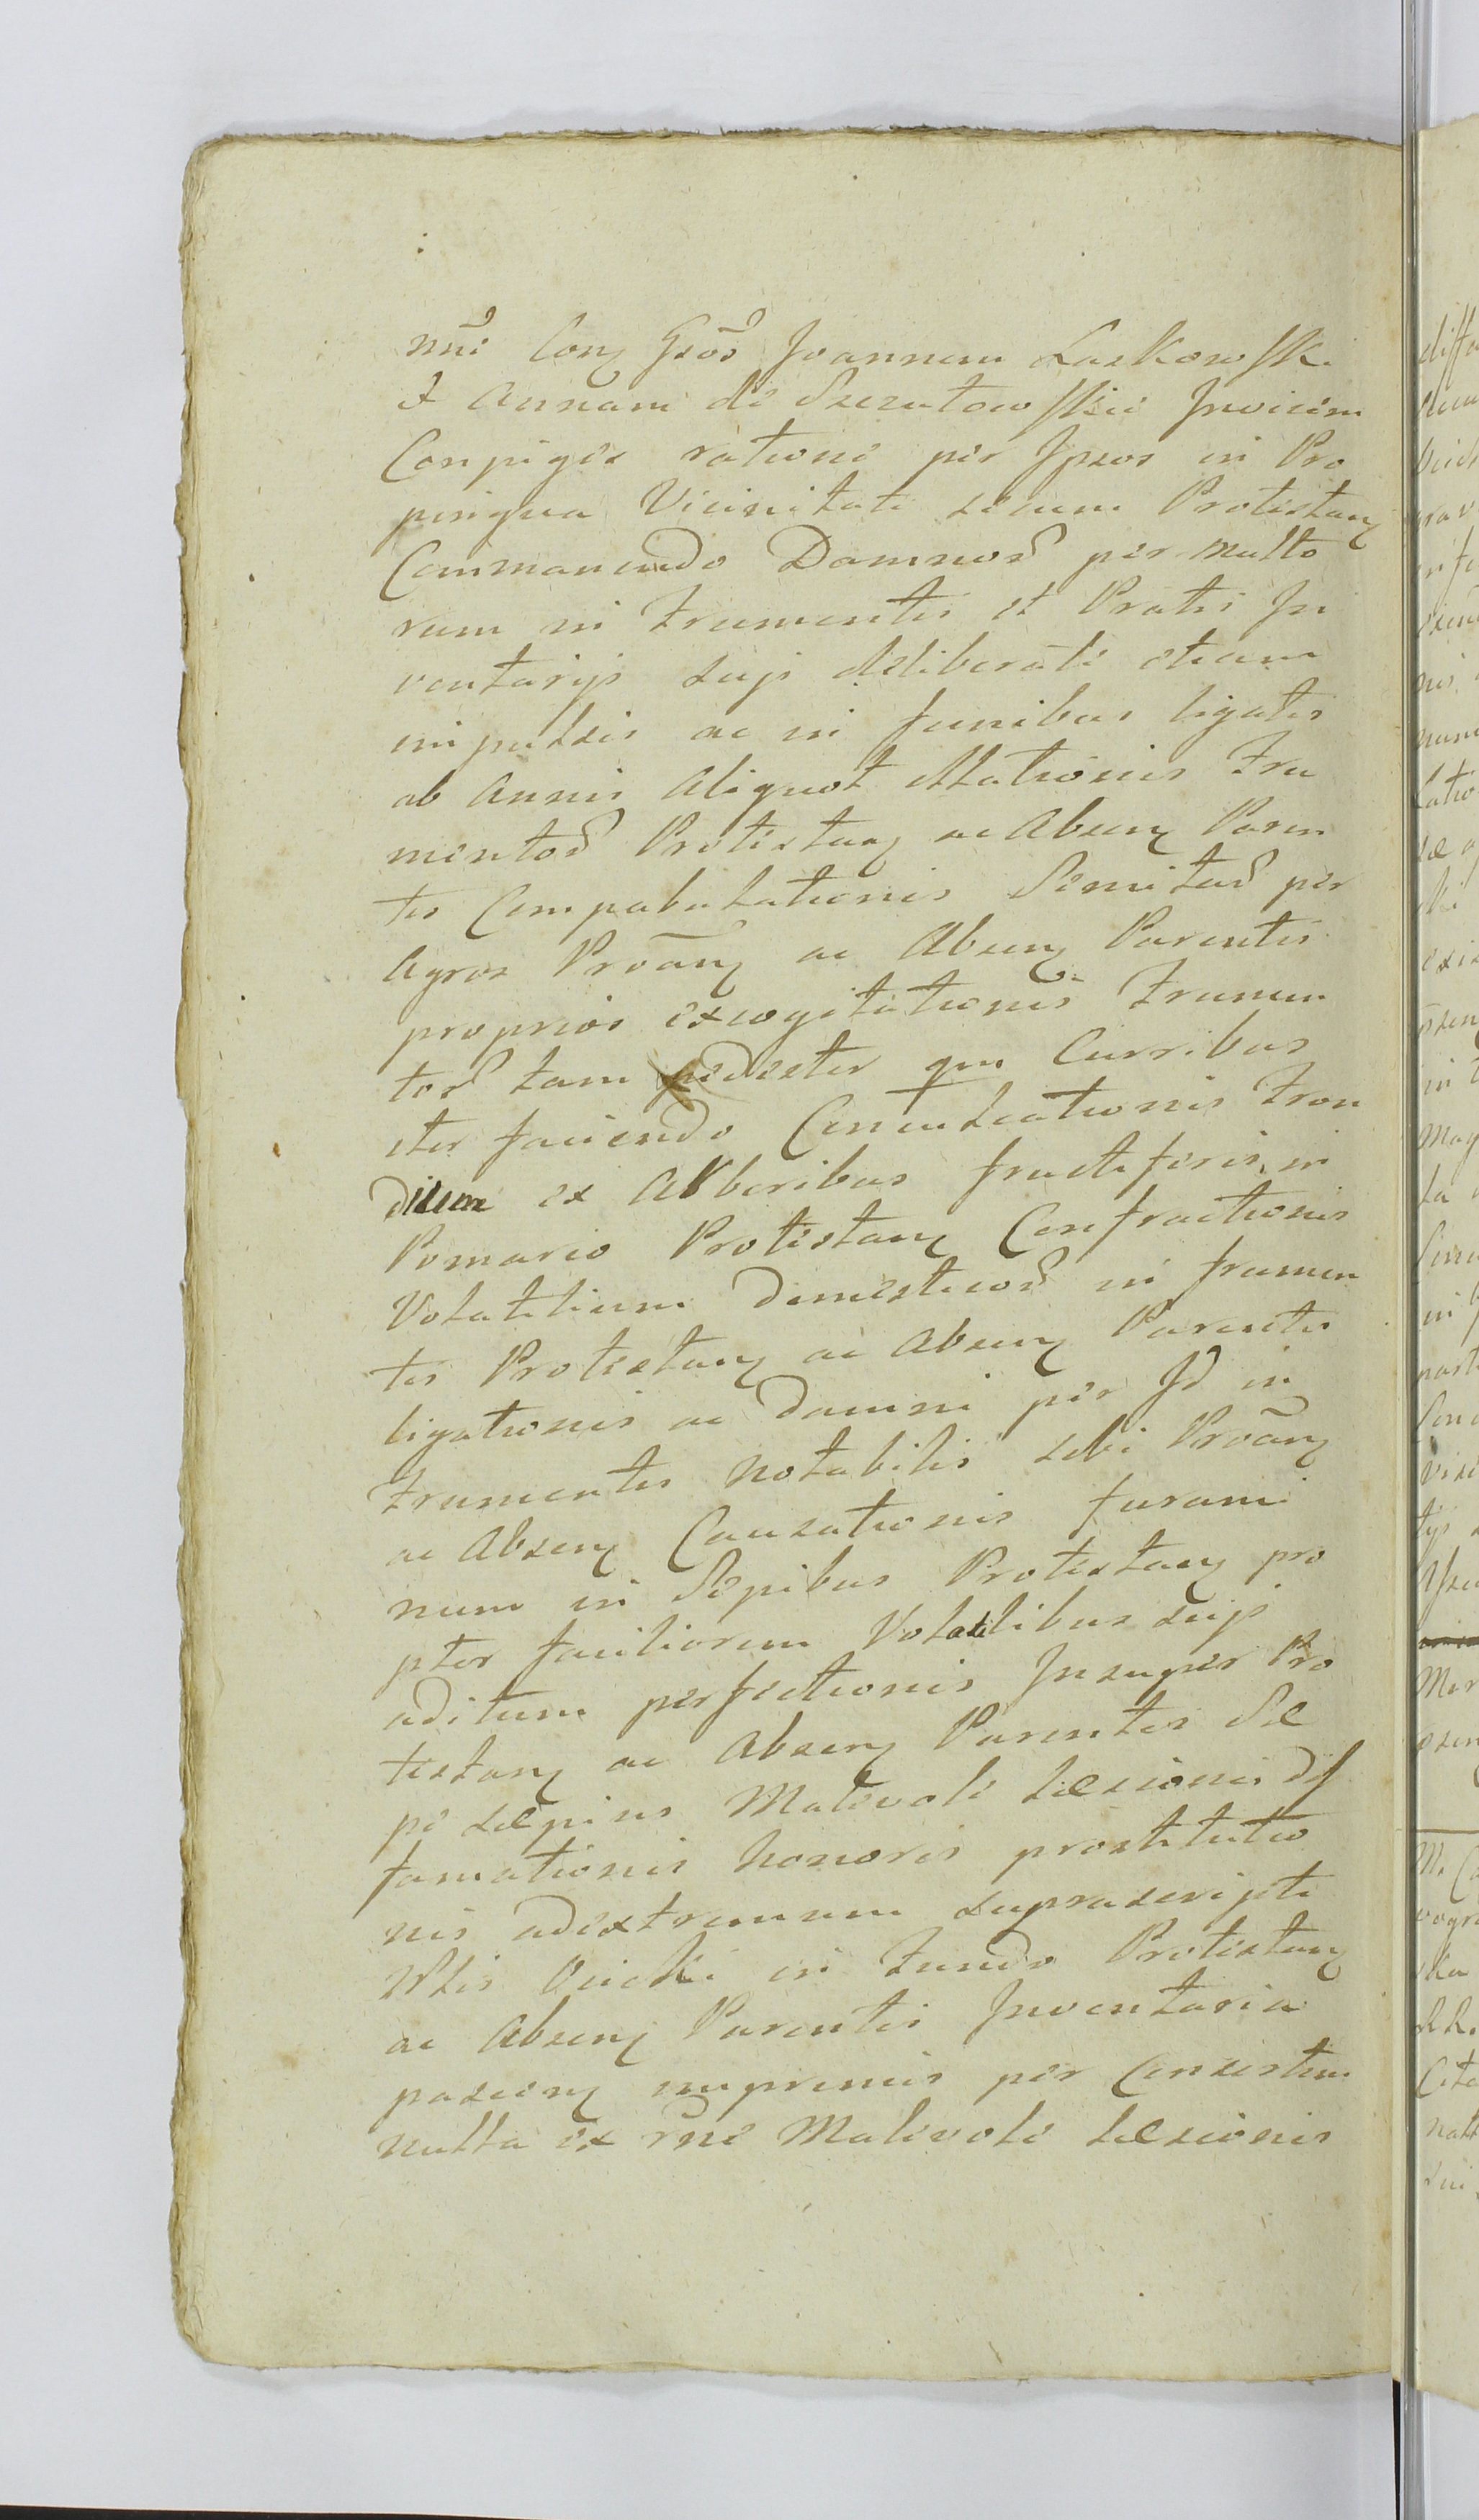 nni Con Gsos Joannem Laskowski
et Annam de Szczutowskie Invicem
Conjuges ratione per Ipsos in Pro
pinqua Vicinitate secum Protestan
Commanendo Damnor per multo
rum in Frumentis et Pratis In
ventarijs suis deliberate etiam
impulsis ac in funibus ligatis
ab Annis Aliquot illationis Fru
mentor Protestan ac Absen Paren
tis Compabulationis Semitar per
Agros Proan ac Absen Parentis
proprios excogitationis Frumen
tor tam pedester qm Curribus
iter faciendo Conculcationis Fron
dium ex Arboribus fructiferis in
Pomario Protestan Confractionis
Volatilium domesticor in frumen
tis Protestan ac Absen Parentis
ligationis ac damni per Id in
Frumentis notabilis sibi Proan
ac Absen Causationis forami
num in Sepibus Protestan pro
pter faciliorem Volatilibus suis
aditum perfectionis Insuper Pro
testan ac Absen Parentis Sæ
pe sæpius Malevole læsionis dif
famationis honoris prostitutio
nis adextremum suprascripti
in Fundo Protestan
ac Absen Parentis Inventaria
pascen imprimis per Consertim
nulla ex rne Malevole læsionis